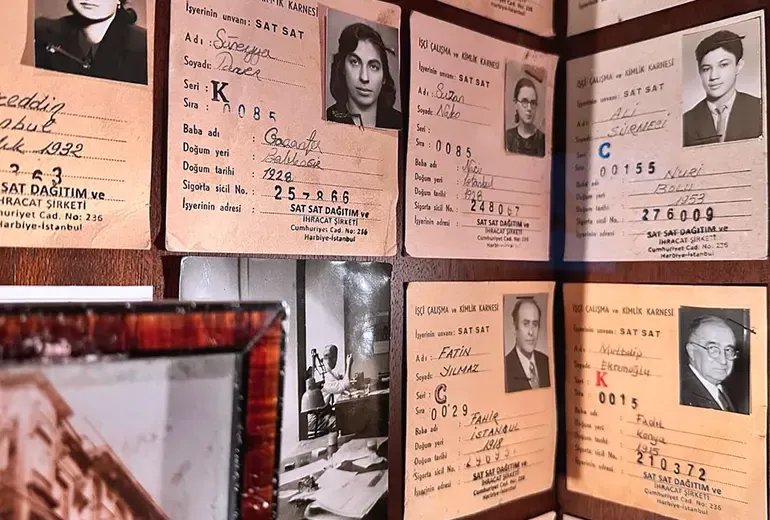 ceddin
nbul
1932
SAT SAT DAĞITIM ve
İHRACAT ŞİRKETİ
Cumhuriyet Cad. No: 236
Harbiye-İstanbul
İŞÇİ ÇALIŞMA ve KİMLİK KARNESİ
İşyerinin unvanı: SAT SAT
Adı : Süreyya
Soyadı:
Seri : K
Sıra : 0085
Baba adı :
Doğum yeri : Balıkesir
Doğum tarihi : 1928
Sigorta sicil No. : 257866
İşyerinin adresi : SAT SAT DAĞITIM ve
İHRACAT ŞİRKETİ
Cumhuriyet Cad. No: 236
Harbiye-İstanbul
İŞÇİ ÇALIŞMA ve KİMLİK KARNESİ
İşyerinin unvanı: SAT SAT
Adı : Suzan
Soyadı:
Seri :
Sıra : 0085
Baba adı :
Doğum yeri : İstanbul
Doğum tarihi : 1928
Sigorta sicil No. : 248067
İşyerinin adresi : SAT SAT DAĞITIM ve
İHRACAT ŞİRKETİ
Cumhuriyet Cad. No: 236
Harbiye-İstanbul
İŞÇİ ÇALIŞMA ve KİMLİK KARNESİ
İşyerinin unvanı : SAT SAT
Adı : ALİ
Soyadı : SÜRMESİ
C
00155
Baba adı : NURİ
Doğum yeri : BOLU
Doğum tarihi : 1953
Sigorta sicil No. : 276009
İşyerinin adresi : SAT SAT DAĞITIM ve
İHRACAT ŞİRKETİ
Cumhuriyet Cad. No: 236
Harbiye-İstanbul
İŞÇİ ÇALIŞMA ve KİMLİK KARNESİ
İşyerinin unvanı: SAT SAT
Adı : FATİN
Soyadı: YILMAZ
Seri : C
Sıra : 0029
Baba adı : FAHİR
Doğum yeri : İSTANBUL
Doğum tarihi : 1918
Sigorta sicil No. :
İşyerinin adresi : SAT SAT DAĞITIM ve
İHRACAT ŞİRKETİ
Cumhuriyet Cad. No: 236
Harbiye-İstanbul
İŞÇİ ÇALIŞMA ve KİMLİK KARNESİ
İşyerinin unvanı: SAT SAT
Adı :
Soyadı: Ekremoğlu
Seri : K
Sıra : 0015
Baba adı : Fadıl
Doğum yeri : Konya
Doğum tarihi : 1915
Sigorta sicil No. : 210372
İşyerinin adresi : SAT SAT DAĞITIM ve
İHRACAT ŞİRKETİ
Cumhuriyet Cad. No: 236
Harbiye-İstanbul